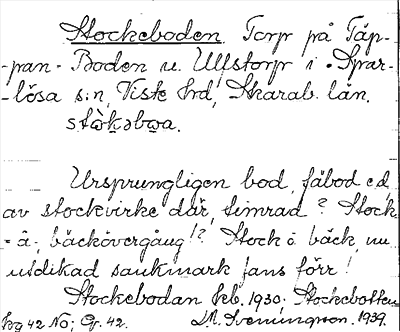 Stockeboden, Torp på Täp-
-pan - Boden u. Ulfstorp i Spar-
-lösa s:n, Viste hrd, Skarab. län.
Ursprungligen bod, fäbod e.d.
av stockvirke där, timrad? Stock
= å-, bäckövergång!? Stock ö bäck, nu
utdikad sankmark fans förr!
Stockebodan kb. 1930. Stockebotten
kg 42 No; Gr. 42. 1939.